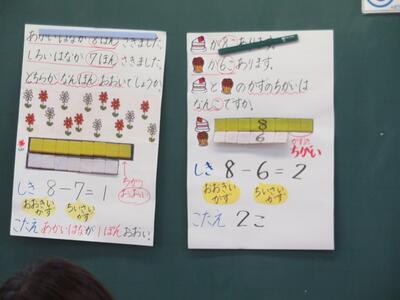 あかいはなが 8ほん さきました。
しろいはなが 7ほん さきました。
どちらが なんぼん おおいでしょうか。
ちがう
おおい
しき 8-7=1
おおきい かず
ちいさい かず
こたえ あかいはなが 1ぽん おおい。
が8こ あります。
が6こ あります。
と のかずのちがいは
なんこですか。
8
6
かずの
ちがい
しき 8-6=2
おおきい かず
ちいさい かず
こたえ 2こ